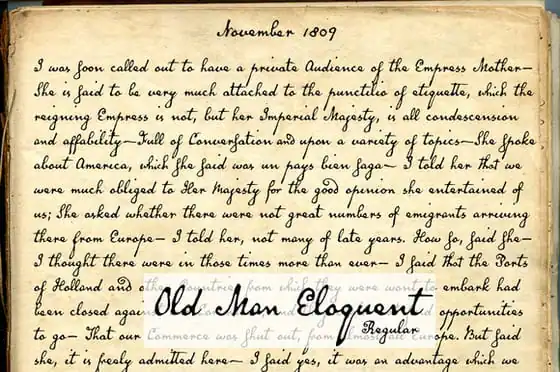 November 1809
I was soon called out to have a private Audience of the Empress Mother—
She is said to be very much attached to the punctilio of etiquette, which the
reigning Empress is not, but her Imperial Majesty, is all condescension
and affability—Full of Conversation and upon a variety of topics—She spoke
about America, which she said was un pays bien saga— I told her that we
were much obliged to Her Majesty for the good opinion she entertained of
us; She asked whether there were not great numbers of emigrants arriving
there from Europe— I told her, not many of late years. How so, said she—
I thought there were in those times more than ever— I said that the Ports
of Holland and other Countries from which they were wont to embark had
been closed opportunities
to go— That our Commerce was shut out, from almost all Europe. But said
she, it is freely admitted here— I said yes, it was an advantage which we
Old Man Eloquent
Regular